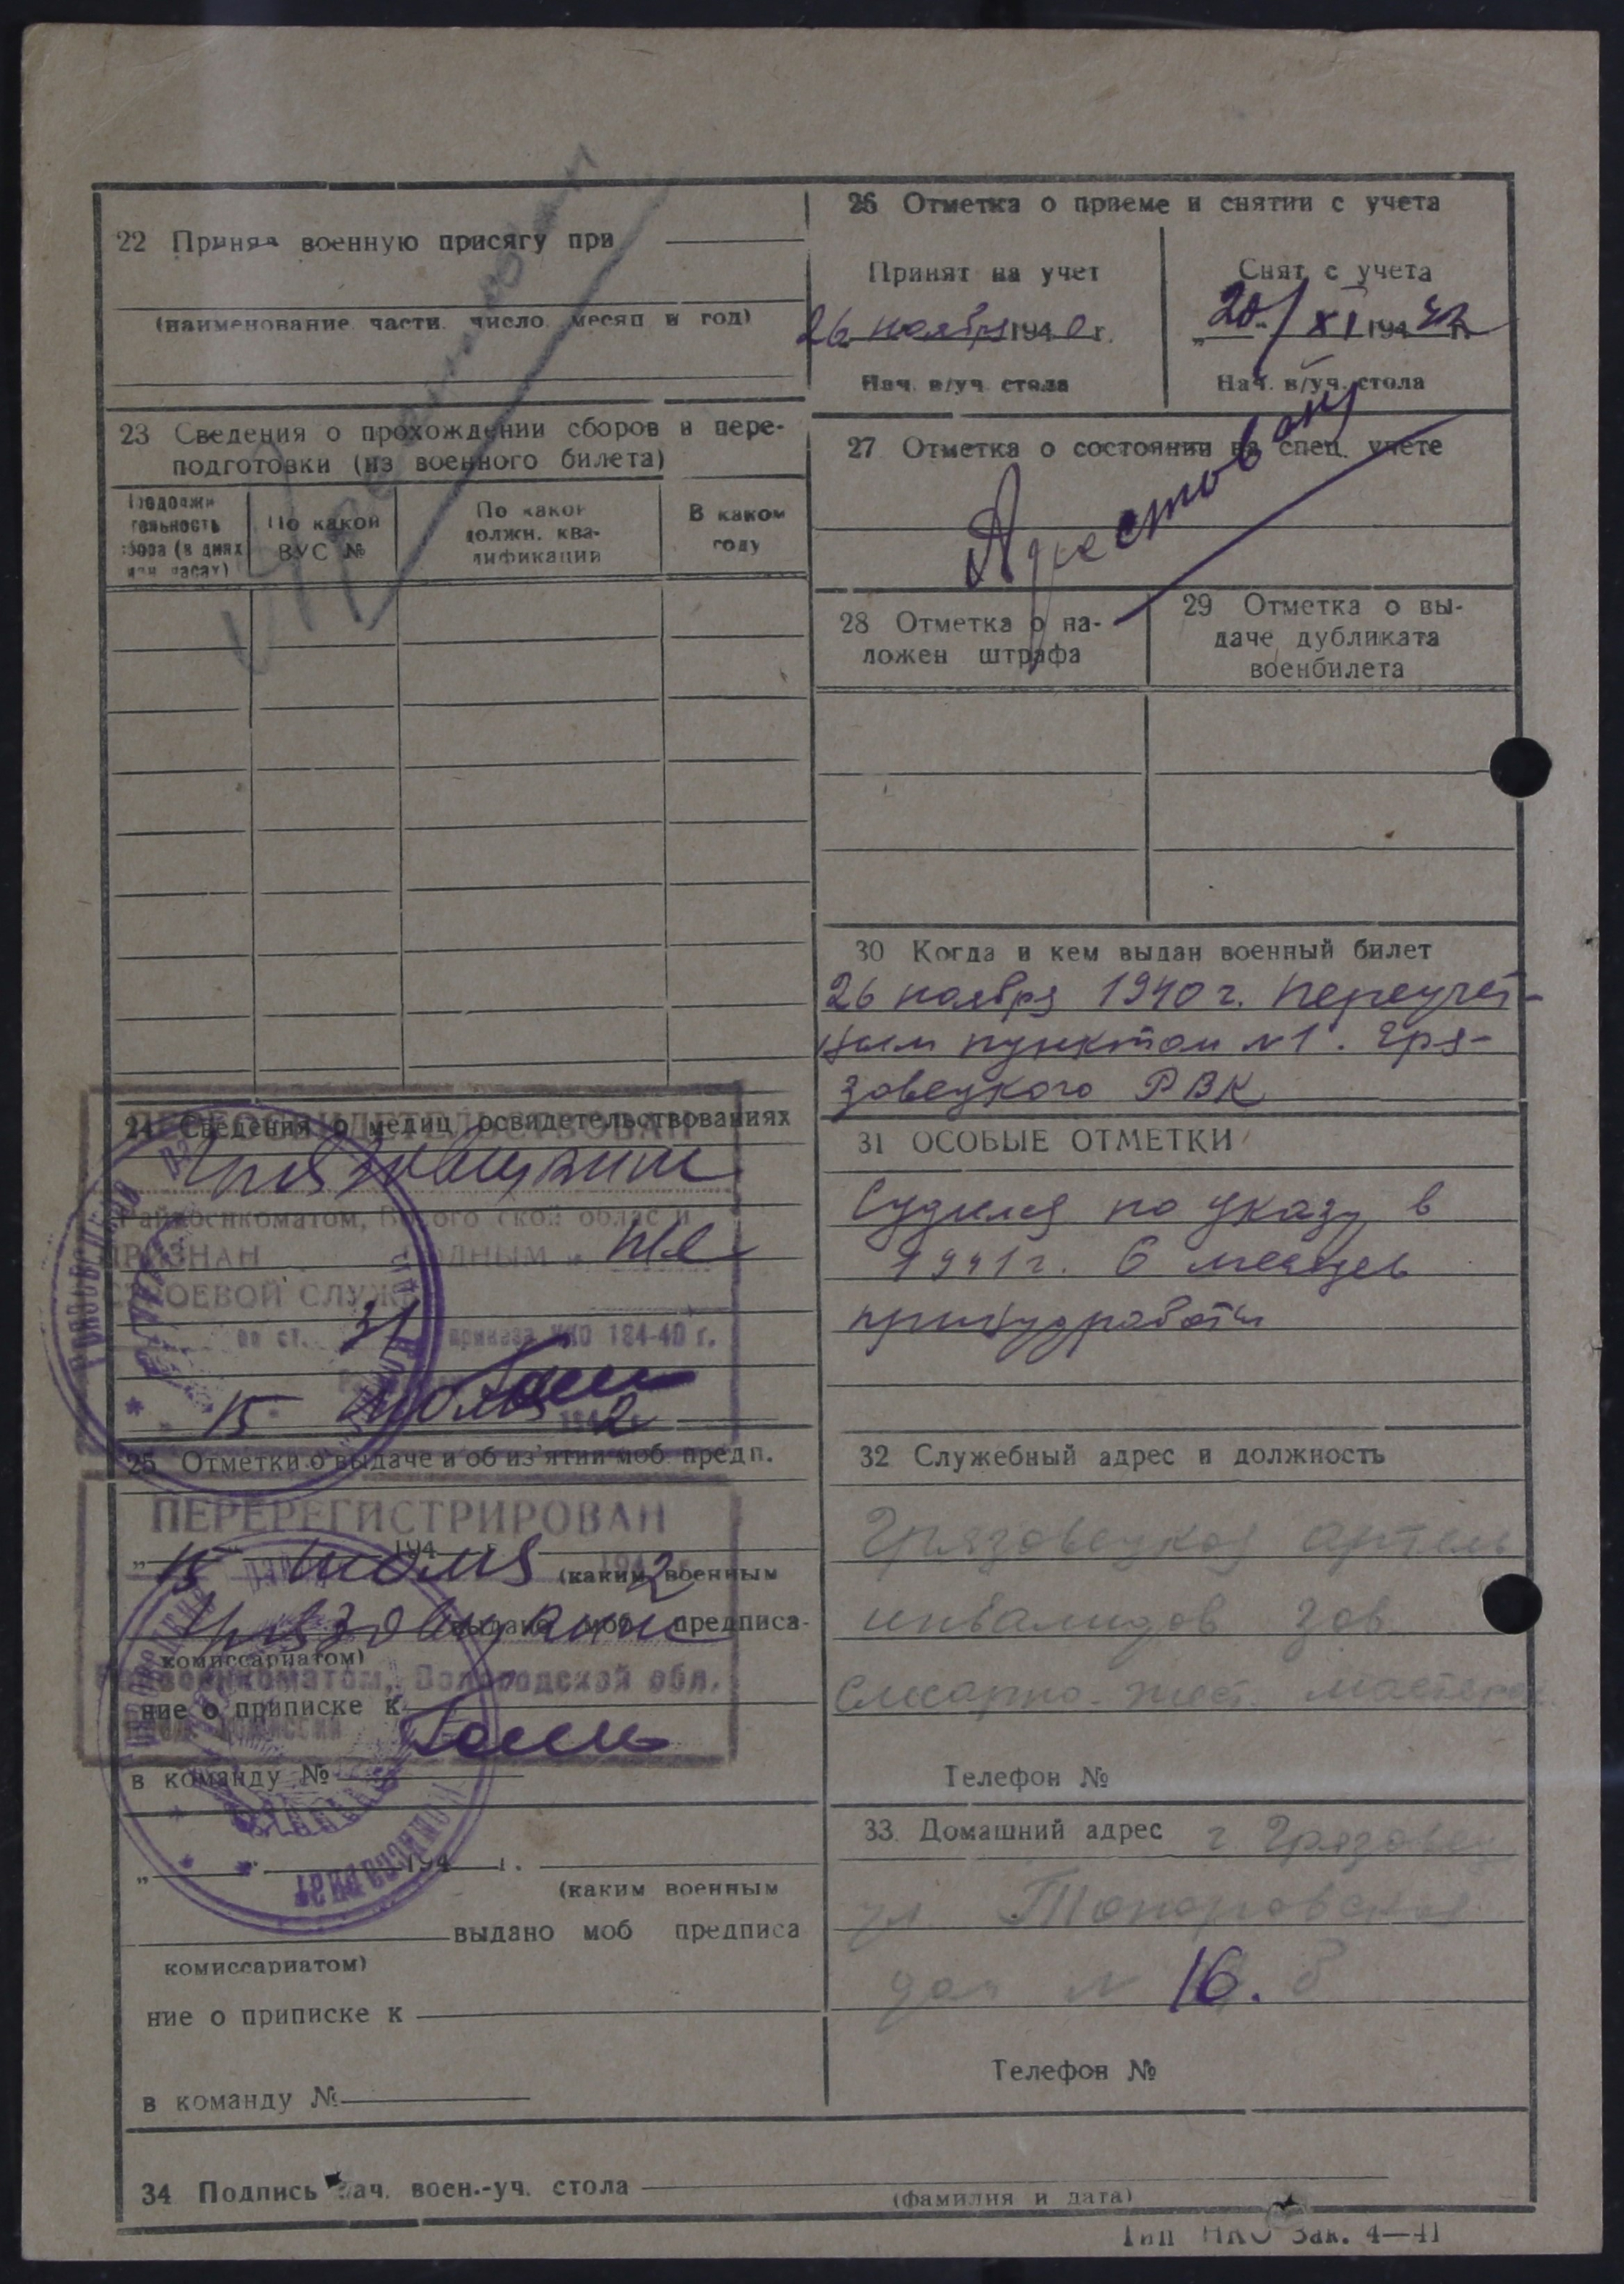 22 Принял военную присягу при
(наименование части, число, месяц и год)
23 Сведения о прохождении сборов и пере-
подготовки (из военного билета)
Продолжи
тельность
сбора (в днях
или часах)
По какой
ВУС №
По какой
должн. ква-
лификации
В каком
году
24 Сведения о медиц освидетельствованиях
ПЕРЕОСВИДЕТЕЛЬСТВОВАН
Грязовецким
Райвоенкоматом, Вологодской области
ПРИЗНАН ГОДНЫМ не
СТРОЕВОЙ СЛУЖ
по ст. 31 приказа НКО 184-40 г.
15 июля 1942
25 Отметки о выдаче и об из'ятии моб. предп.
ПЕРЕРЕГИСТРИРОВАН
„ 194
15 июля 1942 г.
(каким военным
Грязовецким
выдано моб. предписа-
комиссариатом)
Райвоенкоматом, Вологодской обл.
ние о приписке к
в команду №
„ " 194 г.
(каким военным
выдано моб предписа
комиссариатом)
ние о приписке к
в команду №
26 Отметка о приеме и снятии с учета
Принят на учет
26 ноября 1940 г.
Нач. в/уч. стола
Снят с учета
„20" XI 1942 г.
Нач. в/уч. стола
27 Отметка о состоянии на спец. учете
Арестован
28 Отметка о на-
ложен штрафа
29 Отметка о вы-
даче дубликата
военбилета
30 Когда и кем выдан военный билет
26 ноября 1940 г. переучет-
ным пунктом №1. Гря-
зовецкого РВК
31 ОСОБЫЕ ОТМЕТКИ
Судился по указу в
1941 г. 6 месяцев
принудработы
32 Служебный адрес и должность
Грязовецкая артель
инвалидов зав.
слесарно-жест. мастерск
Телефон №
33. Домашний адрес г. Грязовец
ул Топоровская
дом № 16.
Телефон №
34 Подпись нач. воен.-уч. стола
(фамилия и дата)
Тип НКО Зак. 4—41